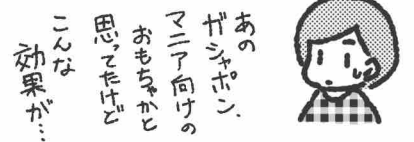 あの
ガシャポン、
マニア向けの
おもちゃかと
思ってたけど
こんな
効果が…